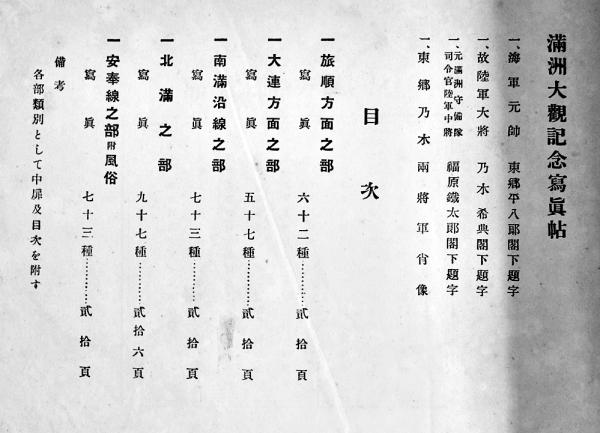 滿洲大觀記念寫眞帖
一、海軍元帥 東郷平八郎閣下題字
一、故陸軍大將 乃木希典閣下題字
一、元滿洲守備隊司令官陸軍中將 福原鐵太郎閣下題字
一、東郷乃木兩將軍肖像
目次
一旅順方面之部
寫眞 六十二種…………貳拾頁
一大連方面之部
寫眞 五十七種…………貳拾頁
一南滿沿線之部
寫眞 七十三種…………貳拾頁
一北滿之部
寫眞 九十七種…………貳拾六頁
一安奉線之部附風俗
寫眞 七十三種…………貳拾頁
備考
各部類別として中扉及目次を附す